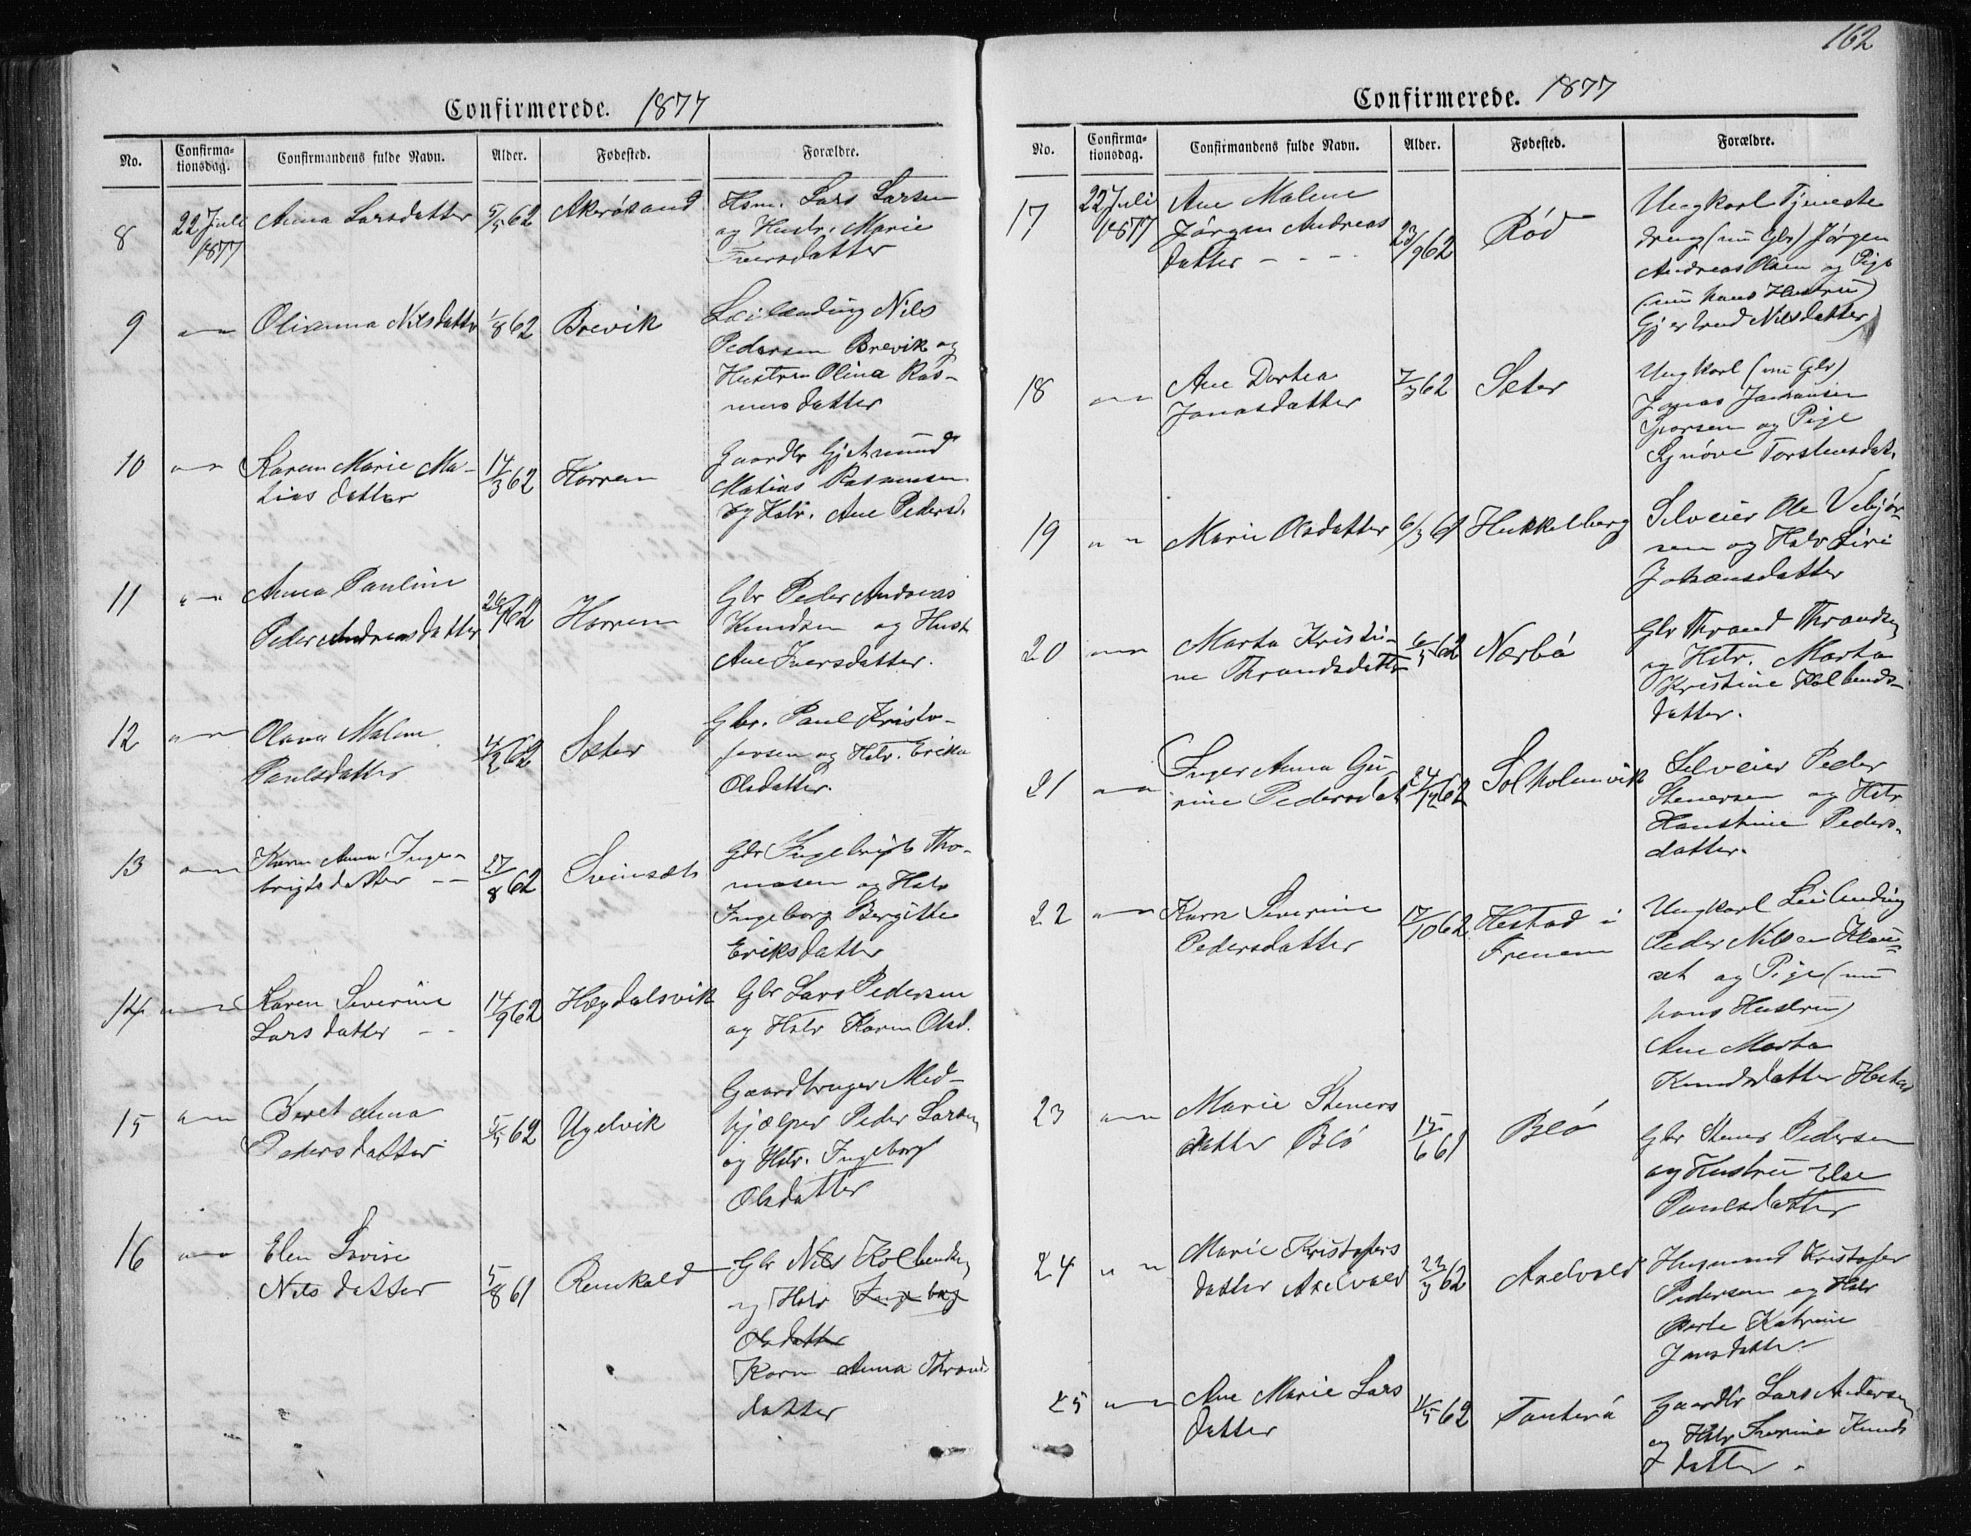 162
Confirmerede. 1877
No. Confirmationsdag. Confirmandens fulde Navn. Alder. Fødested. Forældre.
8 22 Juli 1877 Anna Larsdatter 5/5 62 Akerøsand Hsm. Lars Larsen
og Hustr. Marie
Iversdatter
9 " Olianna Nilsdatter 1/8 62 Brevik Leilænding Nils
Pedersen Brevik og
Hustru Olina Ras-
musdatter
10 " Karen Marie Ma-
tias datter 14/3 62 Harrem Gaardbr Gjetmund
Matias Rasmussen
og Hstr. Ane Pedersd.
11 " Anna Pauline
Peder Andreasdatter 62 Harrem Gbr Peder Andreas
Knudsen og Hust
Ane Iversdatter.
12 " Olava Malene
Paulsdatter 62 Sæter Gbr. Paul Kristo-
fersen og Hstr. Erika
Olsdatter.
13 " Karen Anna Inge-
brigtsdatter 27/8 62 Sveinsæt Gbr Ingebrigt Tho-
masen og Hstr
Ingeborg Bergitte
Eriksdatter
14 " Karen Severine
Larsdatter 14/9 62 Hægdalsvik Gbr Lars Pedersen
og Hstr Karen Olsd.
15 " Beret Anna
Pedersdatter 5/5 62 Ugelvik Gaardbruger Med-
hjælper Peder Larsen
og Hstr. Ingeborg
Olsdatter
16 " Elen Lovise
Nilsdatter 5/8 61 Remkald Gbr Nils Kolbendsen
og Hstr Ingeborg
Olsdatter
Karn Anna Thrond
datter
Confirmerede. 1877
No. Confirmationsdag. Confirmandens fulde Navn. Alder. Fødested. Forældre.
17 22 Juli 1877 Ane Malene
Jørgen Andreas
datter 23/9 62 Rød Ungkarl Tjeneste
dreng (nu Gbr) Jørgen
Andreas Olsen og Pige
(nu hans Hustru)
Gjertrud Nilsdatter
18 " Ane Dortea
Jonasdatter 7/3 62 Sæter Ungkarl (nu Gbr)
Jonas
og Pige
Synøve Torstensdat.
19 " Marie Olsdatter 6/3 61 Hukkelberg Selveier Ole Vebjør-
sen og Hstr Siri
Johansdatter
20 " Marta Kristi-
ne Thrandsdatter 6/5 62 Nærbø Gbr Thrand Thrandsen
og Hstr. Marta
Kristine Kolbends-
datter.
21 " Inger Anna Gu-
rine Pedersdat 24/12 62 Solholmvik Selveier Peder
Stenersen og Hstr
Hanstine Peders-
datter.
22 " Karn Severine
Pedersdatter 17/10 62 Hestad i
Frenem Ungkarl Leilending
Peder Nilsen Klau-
set og Pige (nu
hans Hustru)
Ane Marta
Knudsdatter Hestad
23 " Marie Steners
datter Blø 15/6 61 Blø Gbr Stener Pedersen
og Hustru Else
Paulsdatter
24 " Marie Kristofers
datter Axelvold 22/3 62 Axelvold Husmand Kristofer
Pedersen og Hstr
Katrine
Jonsdatter
25 " Ane Marie Lars
datter 62 Tauterø Gaardbr Lars Andersen
og Hstr Severine Knuds
datter